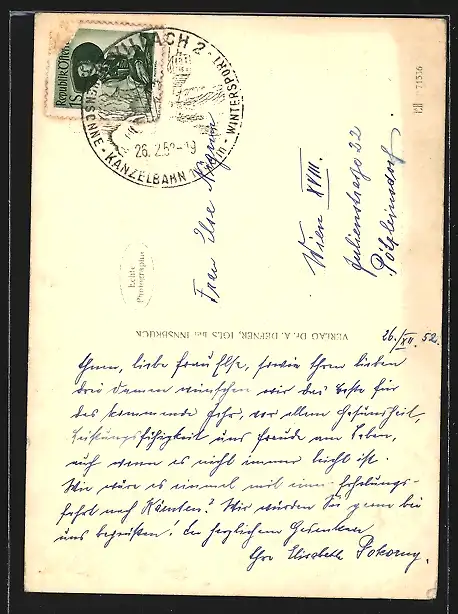 Republik Österreich
1S
VILLACH 2
HÖHENSONNE - KANZELBAHN - WINTERSPORT
26.12.52-19
Frau Ilse
Wien XVIII.
Julienstrasse 22
Pötzleinsdorf.
Echte
Photographie
VERLAG Dr. A. DEFNER, IGLS bei INNSBRUCK
26./XII. 52.
Ihnen, liebe Frau Ilse, sowie Ihren lieben
drei Damen wünschen wir das Beste für
das kommende Jahr, vor allem Gesundheit,
Leistungsfähigkeit und Freude am Leben,
auch wenn es nicht immer leicht ist.
Wie wäre es einmal mit einer Erholungs-
fahrt nach Kärnten? Wir würden Sie gerne bei
uns begrüßen! In herzlichem Gedenken
Ihre Elisabeth Pokorny.